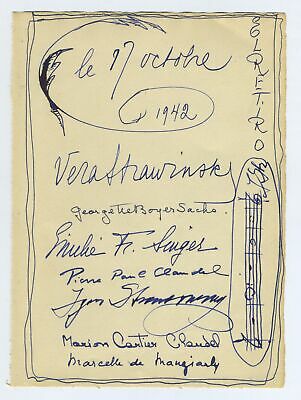 le 17 octobre
1942
SOL RETIRO
Vera Strawinsky
Georgette Boyer Sachs
Emilie F. Singer
Pierre Paul Claudel
Igor Strawinsky
Marion Cartier Claudel
Marcelle de Manziarly